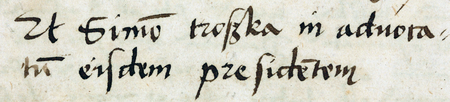 Et Simō troſzka in aduoca-
tū eisdem presidētem